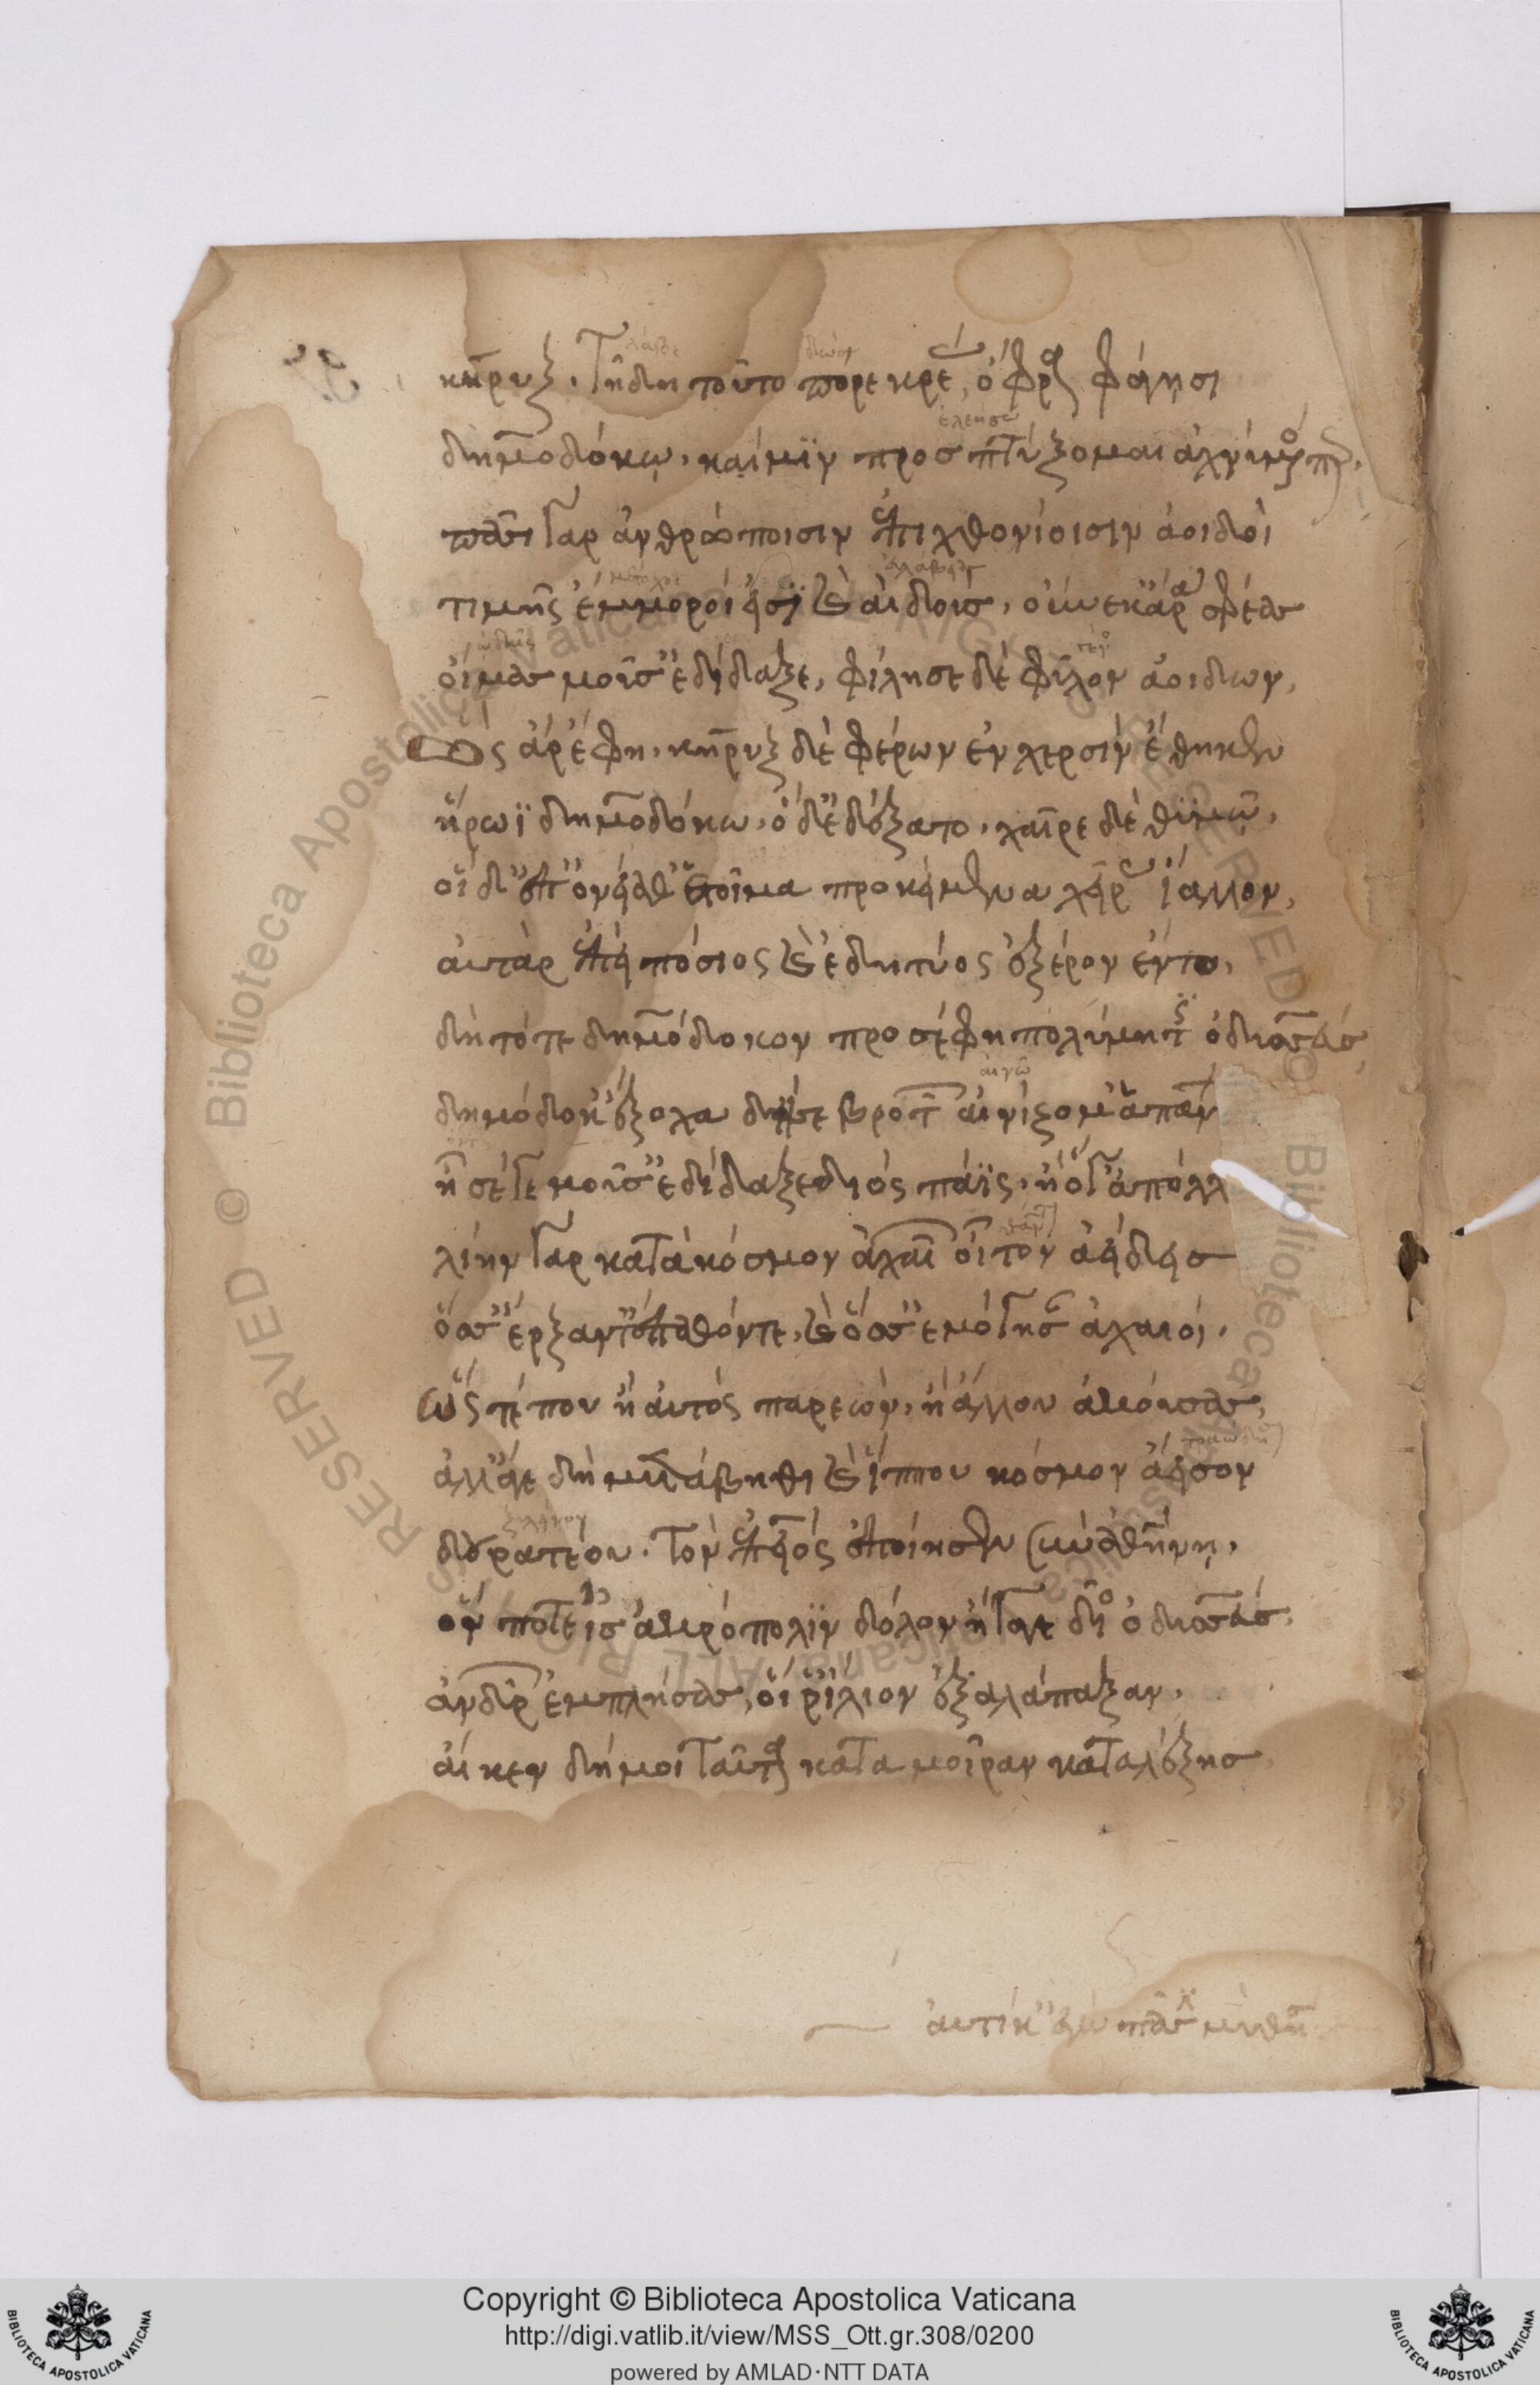 κῆρυξ. τῆ δὴ τοῦτο πόρε κρέας, ὄφρα φάγησι
δημοδόκω. καί μιν προσπτύξομαι ἀχνύμενός περ.
πᾶσι γὰρ ἀνθρώποισιν ἐπιχθονίοισιν ἀοιδοὶ
τιμῆς ἔμμοροί εἰσι καὶ αἰδοῦς, οὕνεκ' ἄρα σφέας
οἴμας μοῦσ' ἐδίδαξε, φίλησε δὲ φῦλον ἀοιδῶν,
Ὣς ἄρ' ἔφη. κῆρυξ δὲ φέρων ἐν χερσὶν ἔθηκεν
ἥρωϊ δημοδόκω. ὁ δ' ἐδέξατο. χαῖρε δὲ θυμῷ.
οἱ δ' ἐπ' ὀνείαθ' ἑτοῖμα προκείμενα χεῖρας ἴαλλον,
αὐτὰρ ἐπεὶ πόσιος καὶ ἐδητύος ἐξ ἔρον ἕντο,
δὴ τότε δημόδοκον προσέφη πολύμητις ὀδυσσεύς
δημόδοκ' ἔξοχα δή σε βροτῶν αἰνίζομ' ἁπάν
ἢ σέ γε μοῦσ' ἐδίδαξε διὸς πάϊς. ἢ σέ γ' ἀπόλλ
λίην γὰρ κατὰ κόσμον ἀχαιῶν οἶτον ἀείδεις
ὅσσ' ἔρξαν τ' ἔπαθόν τε, καὶ ὅσσ' ἐμόγησαν ἀχαιοί.
ὥς τέ που ἢ αὐτὸς παρεὼν, ἢ ἄλλου ἀκούσας,
ἀλλ' ἄγε δὴ μετάβηθι καὶ ἵππου κόσμον ἄεισον
δουρατέου. τὸν ἐπειὸς ἐποίησεν σὺν ἀθήνῃ,
ὅν ποτ' ἐς ἀκρόπολιν δόλον ἤγαγε δῖος ὀδυσσεύς.
ἀνδρῶν ἐμπλήσας, οἵ ῥ' ἴλιον ἐξαλάπαξαν.
αἴ κεν δή μοι ταῦτα κατὰ μοῖραν καταλέξῃς
αὐτίκ' ἐγὼ πᾶσι μυθή
Copyright © Biblioteca Apostolica Vaticana
http://digi.vatlib.it/view/MSS_Ott.gr.308/0200
powered by AMLAD·NTT DATA